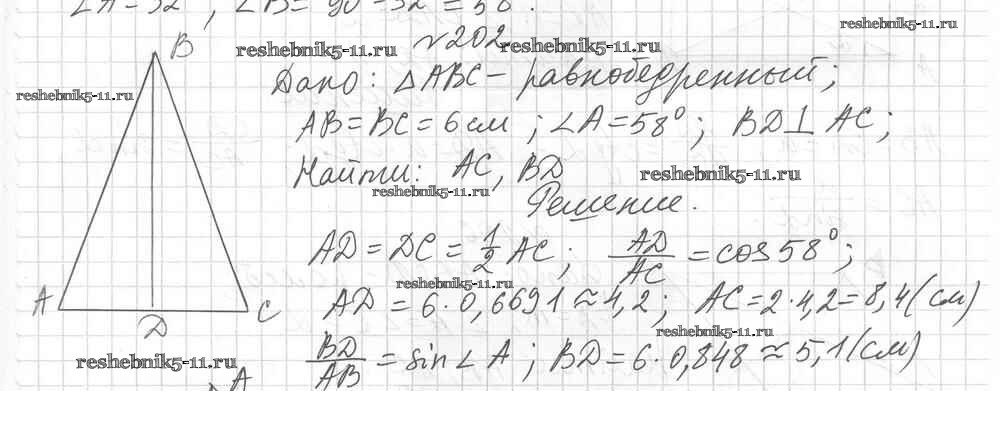 ∠A=32°, ∠B=90°-32°=58°.
reshebnik5-11.ru
reshebnik5-11.ru №202 reshebnik5-11.ru
B
Дано: △ABC – равнобедренный;
reshebnik5-11.ru
AB=BC=6см; ∠A=58°; BD⊥AC;
Найти: AC, BD
reshebnik5-11.ru
reshebnik5-11.ru
Решение.
AD=DC=1/2 AC; AD/AC=cos58°;
reshebnik5-11.ru
A
C
AD=6·0,6691≈4,2; AC=2·4,2=8,4(см)
D
reshebnik5-11.ru
reshebnik5-11.ru
BD/AB=sin∠A; BD=6·0,848≈5,1(см)
A